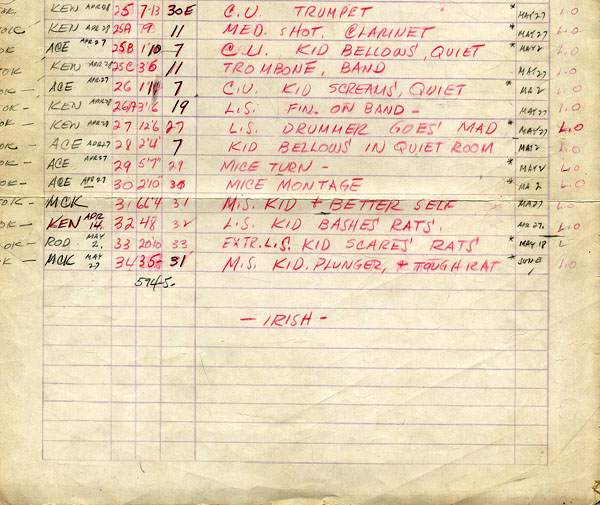 OK KEN APR 28 25 7-13 30E C.U. TRUMPET * MAY 27 L.O
OK KEN APR 28 25A 7'9 11 MED. SHOT, CLARINET * MAY 27 L.O
ACE APR 27 25B 1'10 7 C.U. KID BELLOWS', QUIET * MAY 2 L.O
OK KEN APR 28 25C 3'6 11 TROMBONE, BAND MAY 27 L.O
OK- ACE APR 27 26 7 C.U. KID SCREAMS', QUIET * MA 2 L.O
OK- KEN APR 28 26A 3'6 19 L.S. FIN. ON BAND - MAY 27 L.O
OK- KEN APR 28 27 12'6 27 L.S. DRUMMER GOES' MAD * MAY 27 L.O
OK- ACE APR 27 28 2'4 7 KID BELLOWS' IN QUIET ROOM MAY 2 L.O
OK- ACE APR 27 29 5'7" 29 MICE TURN - * MAY 2 L.O
OK- ACE APR 27 30 2'10 30 MICE MONTAGE * MA 2 L.O
OK- MCK 31 66'4 31 M.S. KID + BETTER SELF MA 27 L.O
OK- KEN APR 14. 32 48 32 L.S. KID BASHES RATS'. * APR 27. L.O
OK- ROD MAY 2. 33 20'0 33 EXTR. L.S. KID SCARES' RATS' * MAY 18 L
K - MCK MAY 27 34 35- 31 M.S. KID, PLUNGER, + TOUGH RAT * JUNE L.O
594'5-
- IRISH -